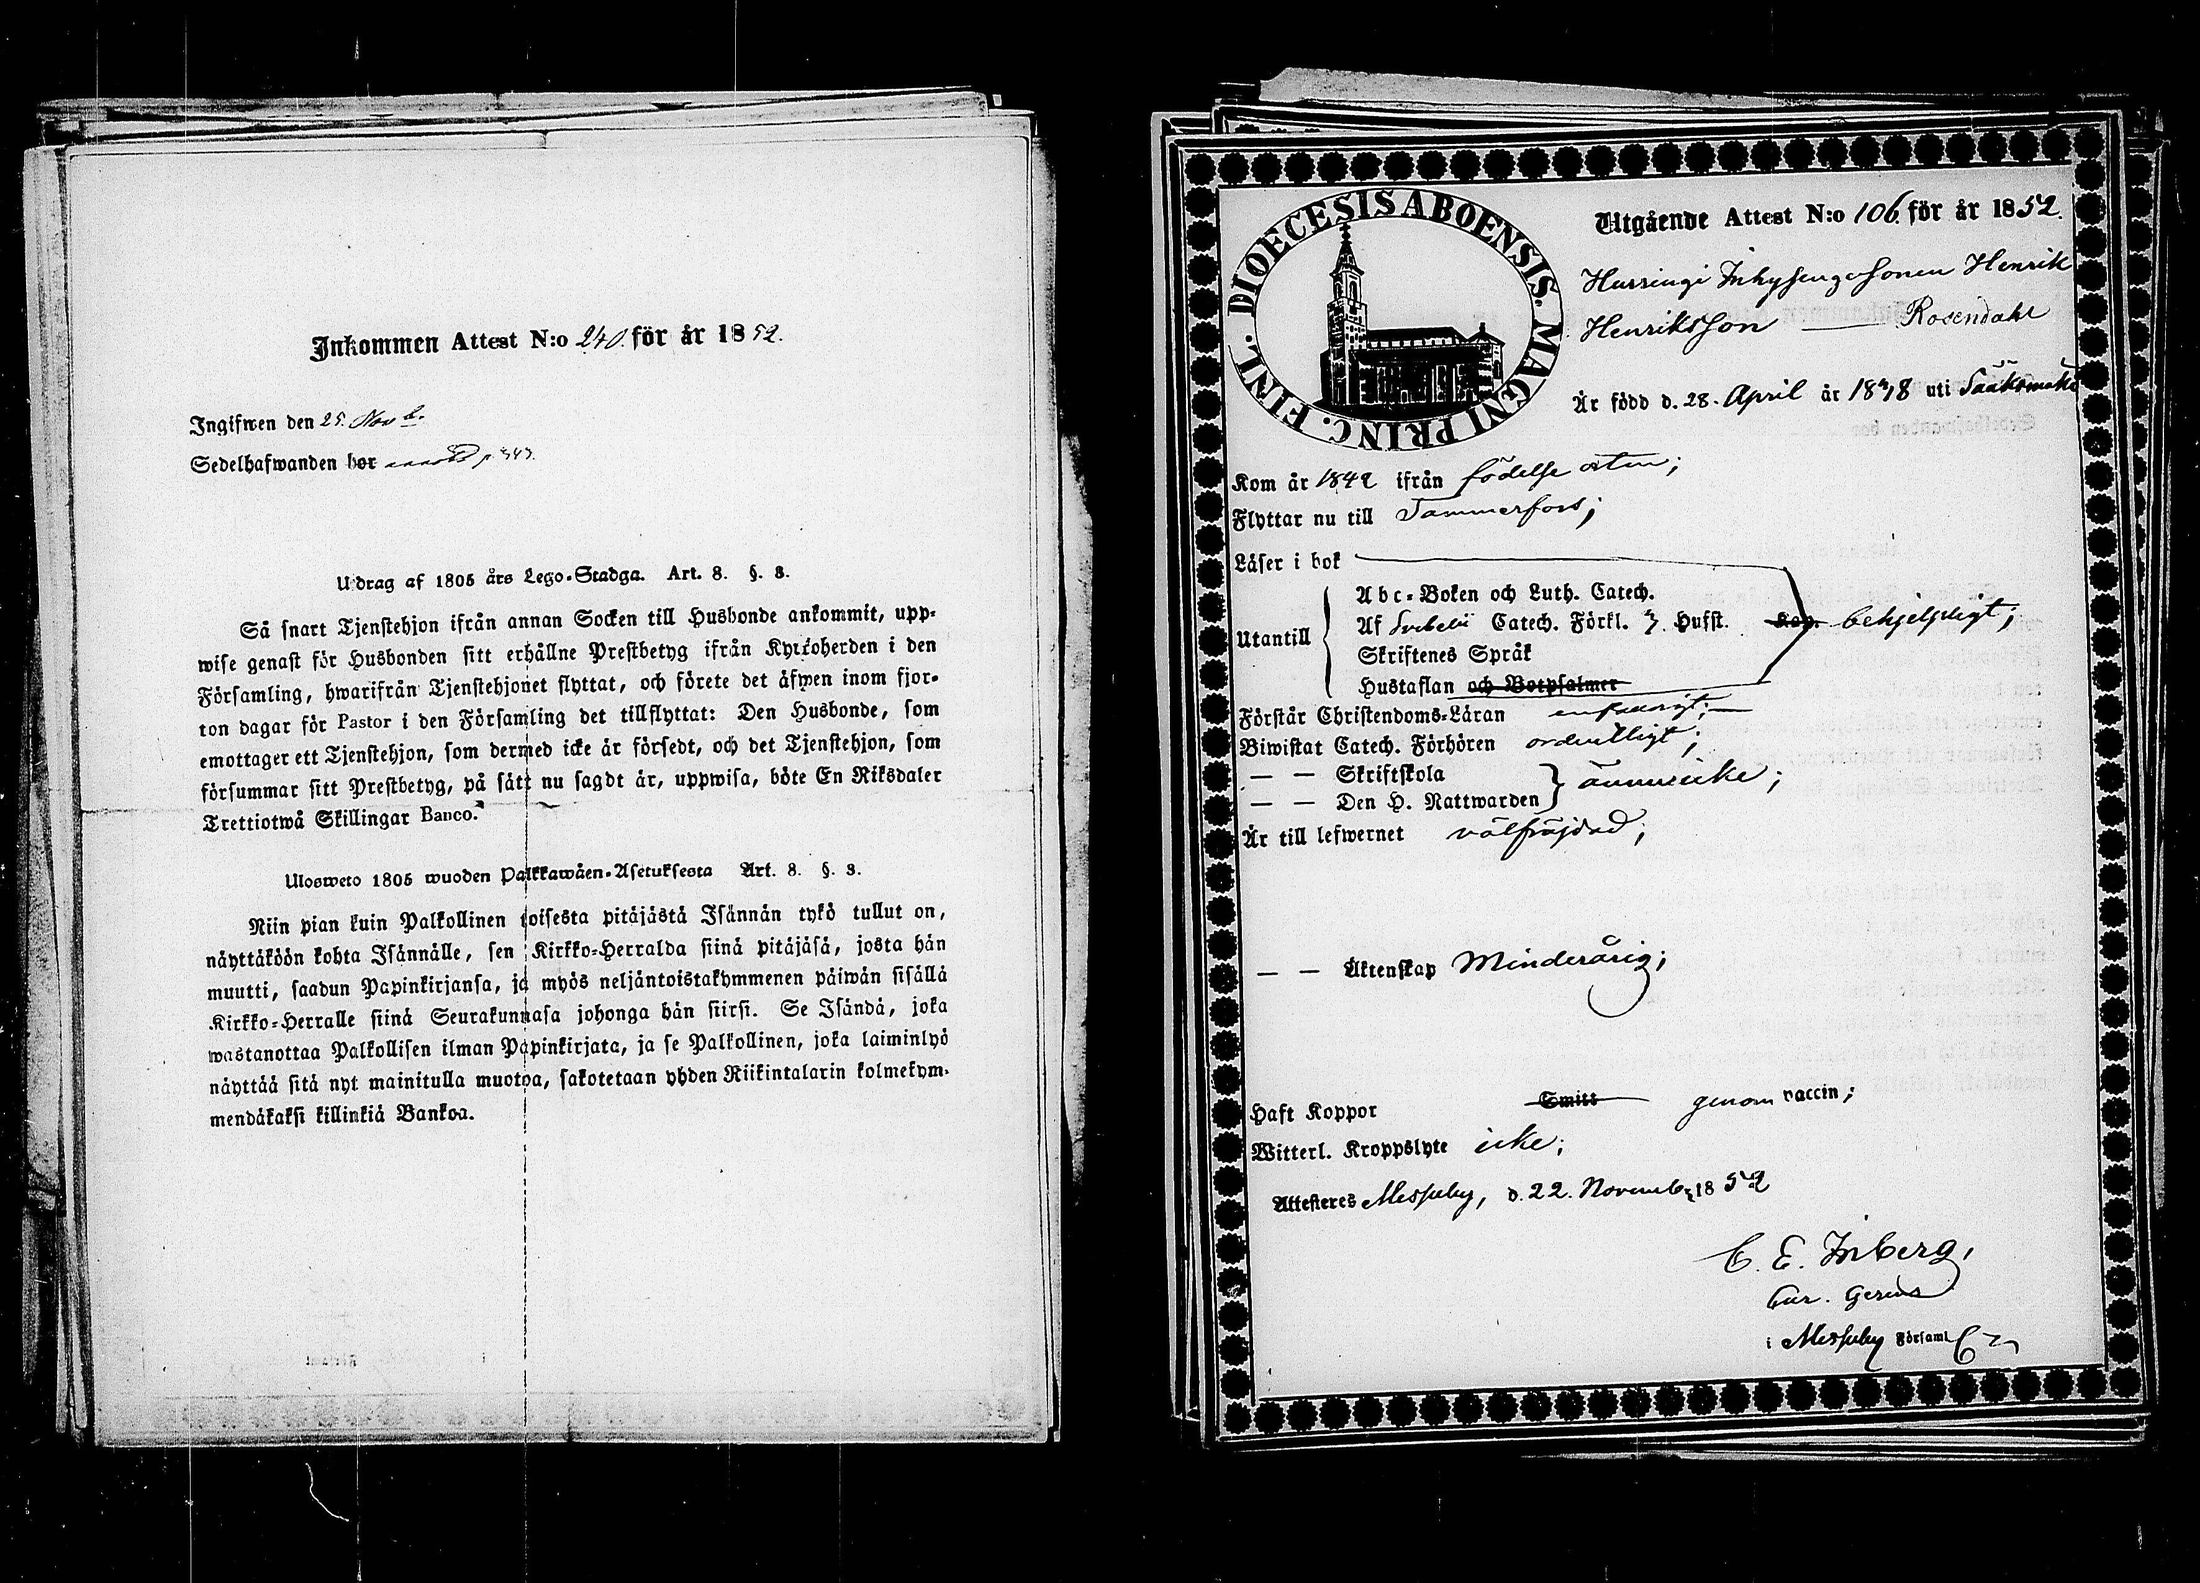 Inkommen Attest N:o 240. för år 1852.
Ingifwen den 25. Novb.
Sedelhafwanden bor p 343.
Utdrag af 1805 års Lego-Stadga. Art. 8. §. 3.
Så snart Tjenstehjon ifrån annan Socken till Husbonde ankommit, upp-
wise genast för Husbonden sitt erhållne Prestbetyg ifrån Kyrkoherden i den
Församling, hwarifrån Tjenstehjonet flyttat, och förete det äfwen inom fjor-
ton dagar för Pastor i den Församling det tillflyttat: Den Husbonde, som
emottager ett Tjenstehjon, som dermed icke är försedt, och det Tjenstehjon, som
försummar sitt Prestbetyg, på sätt nu sagdt är, uppwisa, böte En Riksdaler
Trettiotwå Skillingar Banco.
Ulosweto 1805 wuoden Palkkawäen-Asetuksesta Art. 8. §. 3.
Niin pian kuin Palkollinen toisesta pitäjästä Isännän tykö tullut on,
näyttäköön kohta Isännälle, sen Kirkko-Herralda siinä pitäjäsä, josta hän
muutti, saadun Papinkirjansa, ja myös neljäntoistakymmenen päiwän sisällä
Kirkko-Herralle siinä Seurakunnasa johonga hän siirsi. Se Isändä, joka
wastanottaa Palkollisen ilman Papinkirjata, ja se Palkollinen, joka laiminlyö
näyttää sitä nyt mainitulla muotoa, sakotetaan yhden Riikintalarin kolmekym-
mendäkaksi killinkiä Bankoa.
DIOECESIS ABOENSIS. MAGNI PRINC. FINL.
Utgående Attest N:o 106. för år 1852.
Hursingi Inhysingesonen Henrik
Henriksson — Rosendahl
Är född d. 28. April år 1838 uti Sääksmäki
Kom år 1842 ifrån födelse orten;
Flyttar nu till Tammerfors;
Läser i bok
Abc-Boken och Luth. Catech.
Utantill Af Svebelii Catech. Förkl. 3 Hufst. Kap. behjelpligt;
Skriftenes Språk
Hustaflan och Botpsalmer
Förstår Christendoms-Läran enfaldigt;
Biwistat Catech. Förhören ordentligt;
— — Skriftskola
— — Den H. Nattwarden ännu icke;
Är till lefwernet välfräjdad;
— — Äktenskap Minderårig;
Haft Koppor Smitt genom vaccin;
Witterl. Kroppslyte icke;
Attesteres Messuby, d. 22. Novemb. 1852
C. E. Inberg,
Cur. Gerens
i Messuby Församl